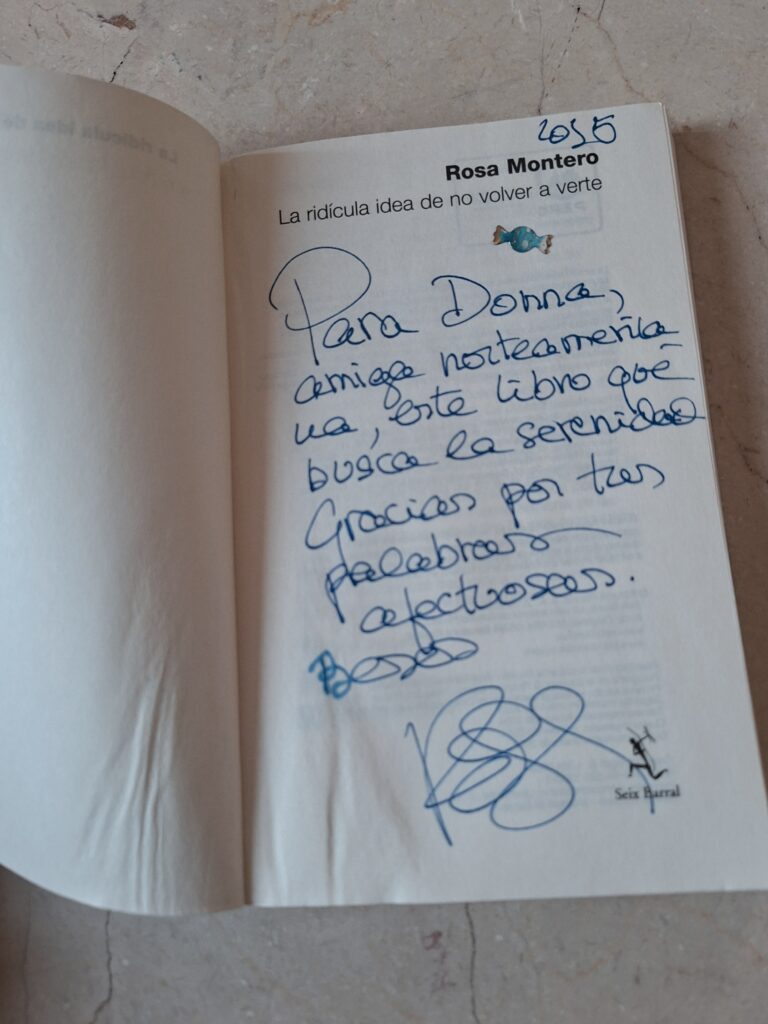 2015
Rosa Montero
La ridícula idea de no volver a verte
Para Donna,
amiga norteamerica
na, este libro que
busca la serenidad
Gracias por tus
palabras
afectuosas.
Besos
Seix Barral